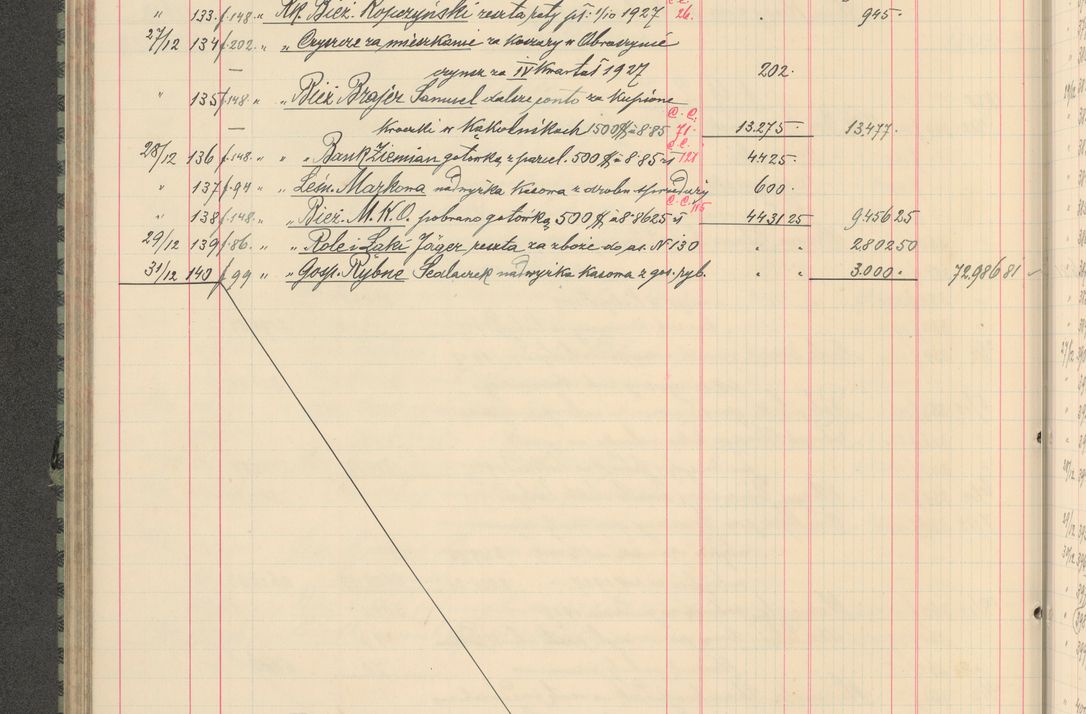 " 133 f. 148 " Rk. Bież. Kopczyński reszta raty pł. 1/10 1927 26. . 945.
27/12 134 f. 202. " " Czynsze za mieszkanie za Koszary w Obroszynie
— czynsz za IV Kwartał 1927 202.
" 135 f. 148. " " Bież Brajer Samuel dalsze conto za Kupione
C. C.
— w Kąkolnikach 1500 $ à 8.85 71. 13.275. 13.477.
C. C.
28/12 136 f. 148. " " " Bank Ziemian gotówką z parcel. 500 $ à 8.85 121 4425.
" 137 f. 94 " " Leśn. Markowa nadwyżka Kasowa z drobn. sprzedaży 600.
C. C. 115
" 138 f. 148. " " Bież. M. K. O. pobrano gotówką 500 $ à 8.8625 4431 25 9456 25
29/12 139 f. 86. " " Role i Łąki Jäger reszta za zboże do as. N 130 " " 2802 50
31/12 140 f. 99 " " Gosp. Rybne nadwyżka kasowa z gos. ryb. " " 3.000. 72.986 81